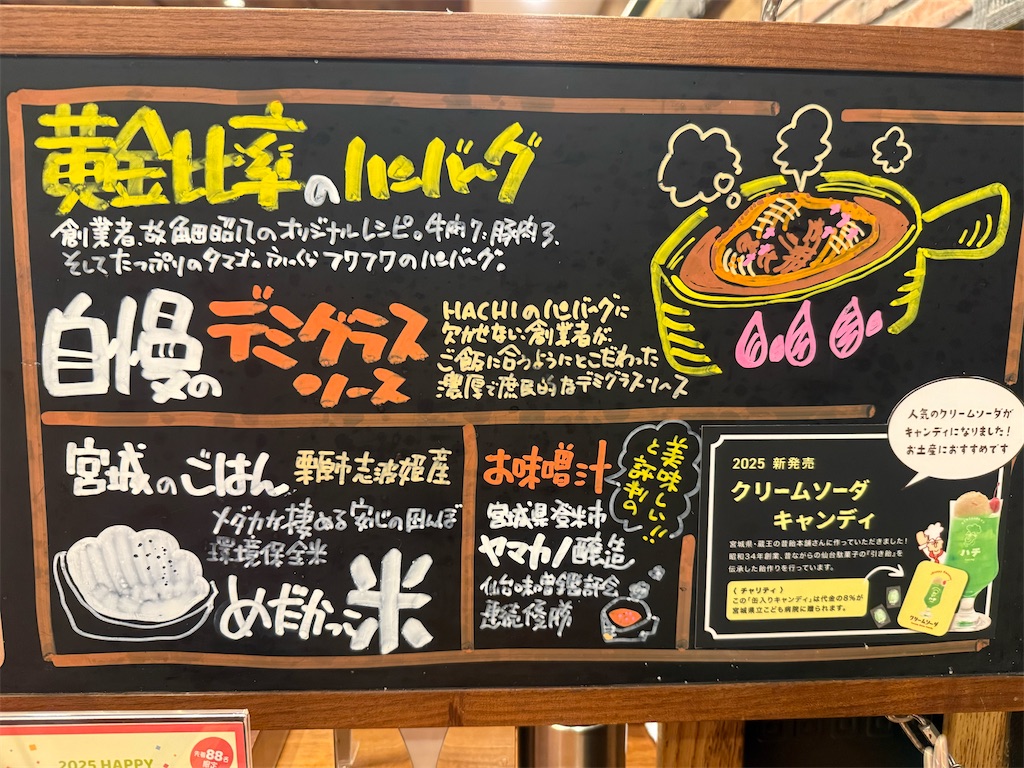 黄金比率のハンバーグ
創業者、故 角田昭八のオリジナルレシピ。牛肉7、豚肉3、
そしてたっぷりのタマゴ。ふっくらフワフワのハンバーグ。
自慢の
デミグラス
ソース
HACHIのハンバーグに
欠かせない、創業者が、
ご飯に合うようにとこだわった
濃厚で庶民的なデミグラスソース
宮城のごはん 栗原市志波姫産
メダカが棲める安心の田んぼ
環境保全米
めだかっこ米
お味噌汁
美味しい!!
と評判の
宮城県登米市
ヤマカノ醸造
仙台味噌鑑評会
連続優勝
人気のクリームソーダが
キャンディになりました!
お土産におすすめです
2025 新発売
クリームソーダ
キャンディ
宮城県・蔵王の昔飴本舗さんに作っていただきました!
昭和34年創業、昔ながらの仙台駄菓子の『引き飴』を
伝承した飴作りを行っています。
〈 チャリティ 〉
この「缶入りキャンディ」は代金の8%が
宮城県立こども病院に贈られます。
ハチ
クリームソーダ
2025 HAPPY
88名
限定